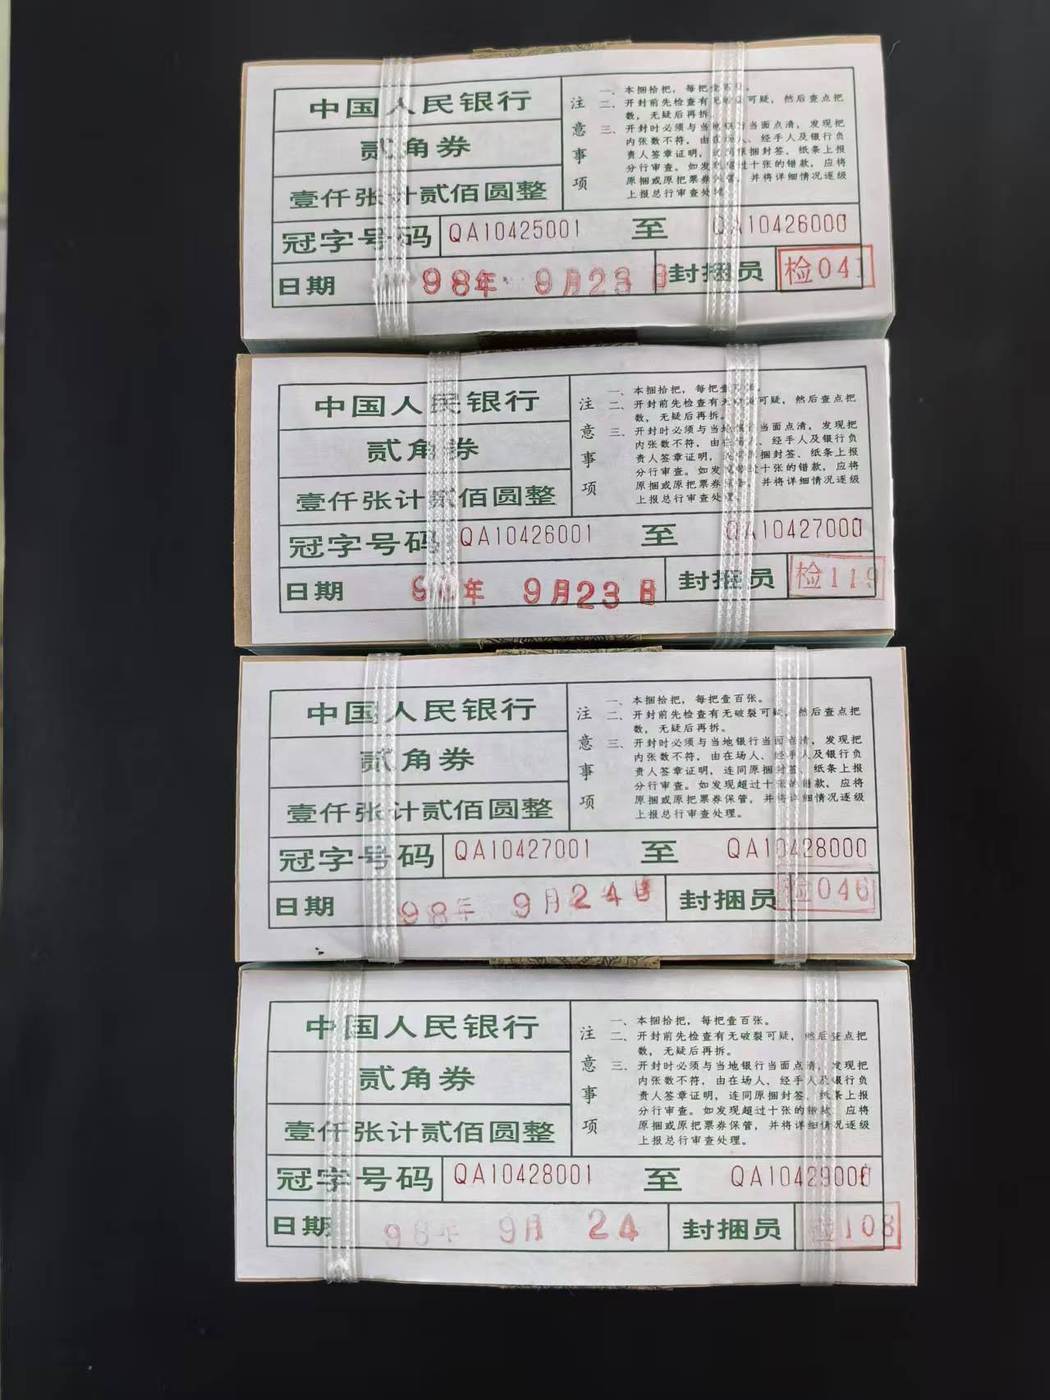 中国人民银行
贰角券
壹仟张计贰佰圆整
注意事项
一、本捆拾把，每把壹百张。
二、开封前先检查有无破裂可疑，然后查点把
数，无疑后再拆。
三、开封时必须与当地银行当面点清，发现把
内张数不符，由在场人、经手人及银行负
责人签章证明，连同原捆封签、纸条上报
分行审查。如发现超过十张的错款，应将
原捆或原把票券保管，并将详细情况逐级
上报总行审查处理。
冠字号码 QA10425001 至 QA10426000
日期 98年 9月23日 封捆员 检041
中国人民银行
贰角券
壹仟张计贰佰圆整
注意事项
一、本捆拾把，每把壹百张。
二、开封前先检查有无破裂可疑，然后查点把
数，无疑后再拆。
三、开封时必须与当地银行当面点清，发现把
内张数不符，由在场人、经手人及银行负
责人签章证明，连同原捆封签、纸条上报
分行审查。如发现超过十张的错款，应将
原捆或原把票券保管，并将详细情况逐级
上报总行审查处理。
冠字号码 QA10426001 至 QA10427000
日期 98年 9月23日 封捆员 检119
中国人民银行
贰角券
壹仟张计贰佰圆整
注意事项
一、本捆拾把，每把壹百张。
二、开封前先检查有无破裂可疑，然后查点把
数，无疑后再拆。
三、开封时必须与当地银行当面点清，发现把
内张数不符，由在场人、经手人及银行负
责人签章证明，连同原捆封签、纸条上报
分行审查。如发现超过十张的错款，应将
原捆或原把票券保管，并将详细情况逐级
上报总行审查处理。
冠字号码 QA10427001 至 QA10428000
日期 98年 9月24日 封捆员 检046
中国人民银行
贰角券
壹仟张计贰佰圆整
注意事项
一、本捆拾把，每把壹百张。
二、开封前先检查有无破裂可疑，然后查点把
数，无疑后再拆。
三、开封时必须与当地银行当面点清，发现把
内张数不符，由在场人、经手人及银行负
责人签章证明，连同原捆封签、纸条上报
分行审查。如发现超过十张的错款，应将
原捆或原把票券保管，并将详细情况逐级
上报总行审查处理。
冠字号码 QA10428001 至 QA10429000
日期 98年 9月 24 封捆员 检108